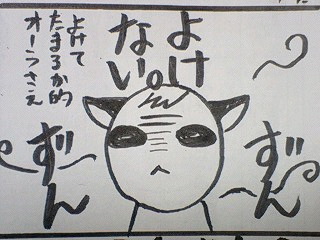 よけ
ない。
よけて
たまるか的
オーラさえ
ずーん
ずーん